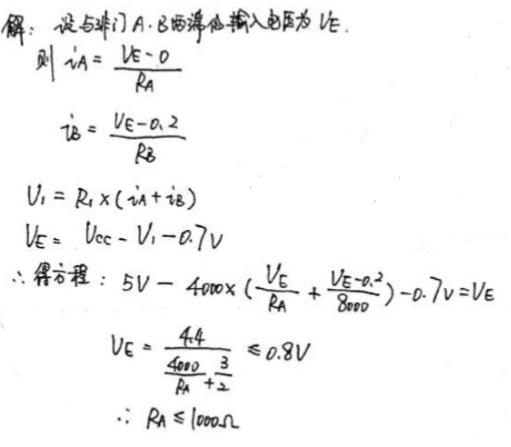 解：设与非门A、B两端的输入电压为VE.
则 iA = (VE-0)/RA
iB = (VE-0.2)/RB
V1 = R1×(iA+iB)
VE = Vcc - V1 - 0.7V
∴得方程：5V - 4000×(VE/RA + (VE-0.2)/8000) - 0.7V = VE
VE = 4.4/(4000/RA + 3/2) ≤ 0.8V
∴ RA ≤ 1000Ω